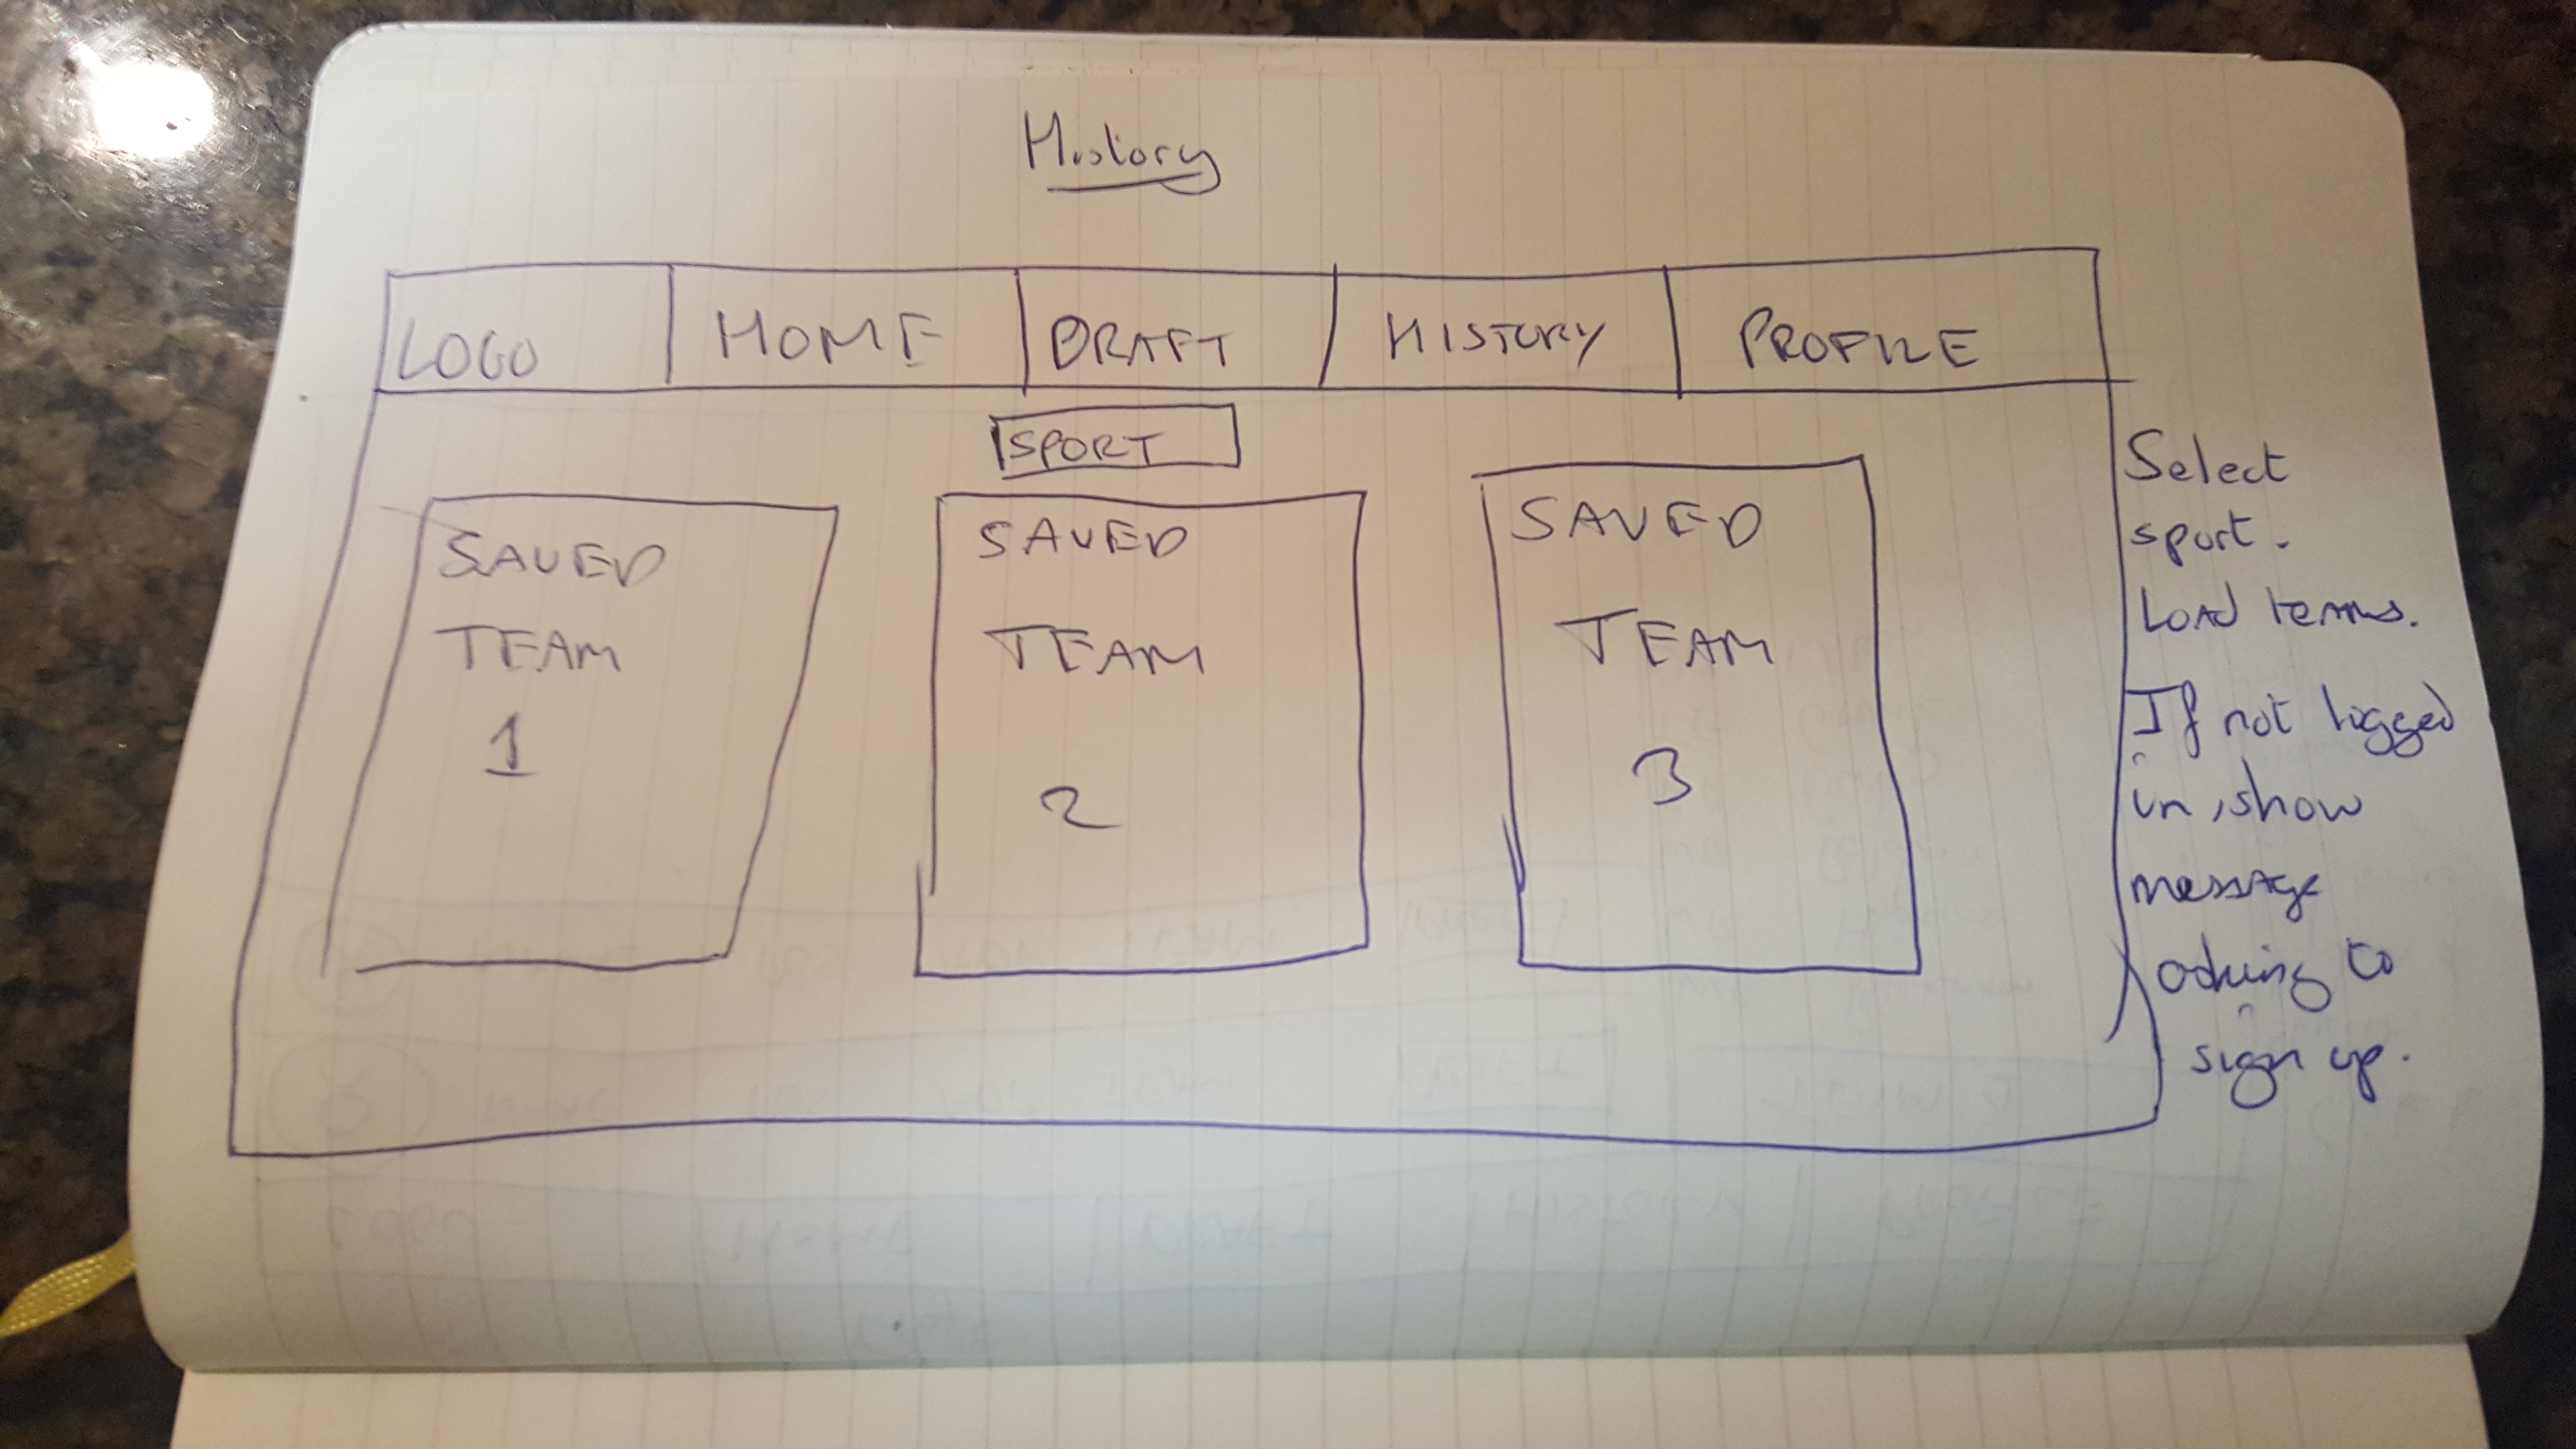 History
LOGO HOME DRAFT HISTORY PROFILE
SPORT
SAVED
TEAM
1
SAVED
TEAM
2
SAVED
TEAM
3
Select
sport.
Load teams.
If not logged
in, show
message
asking to
sign up.